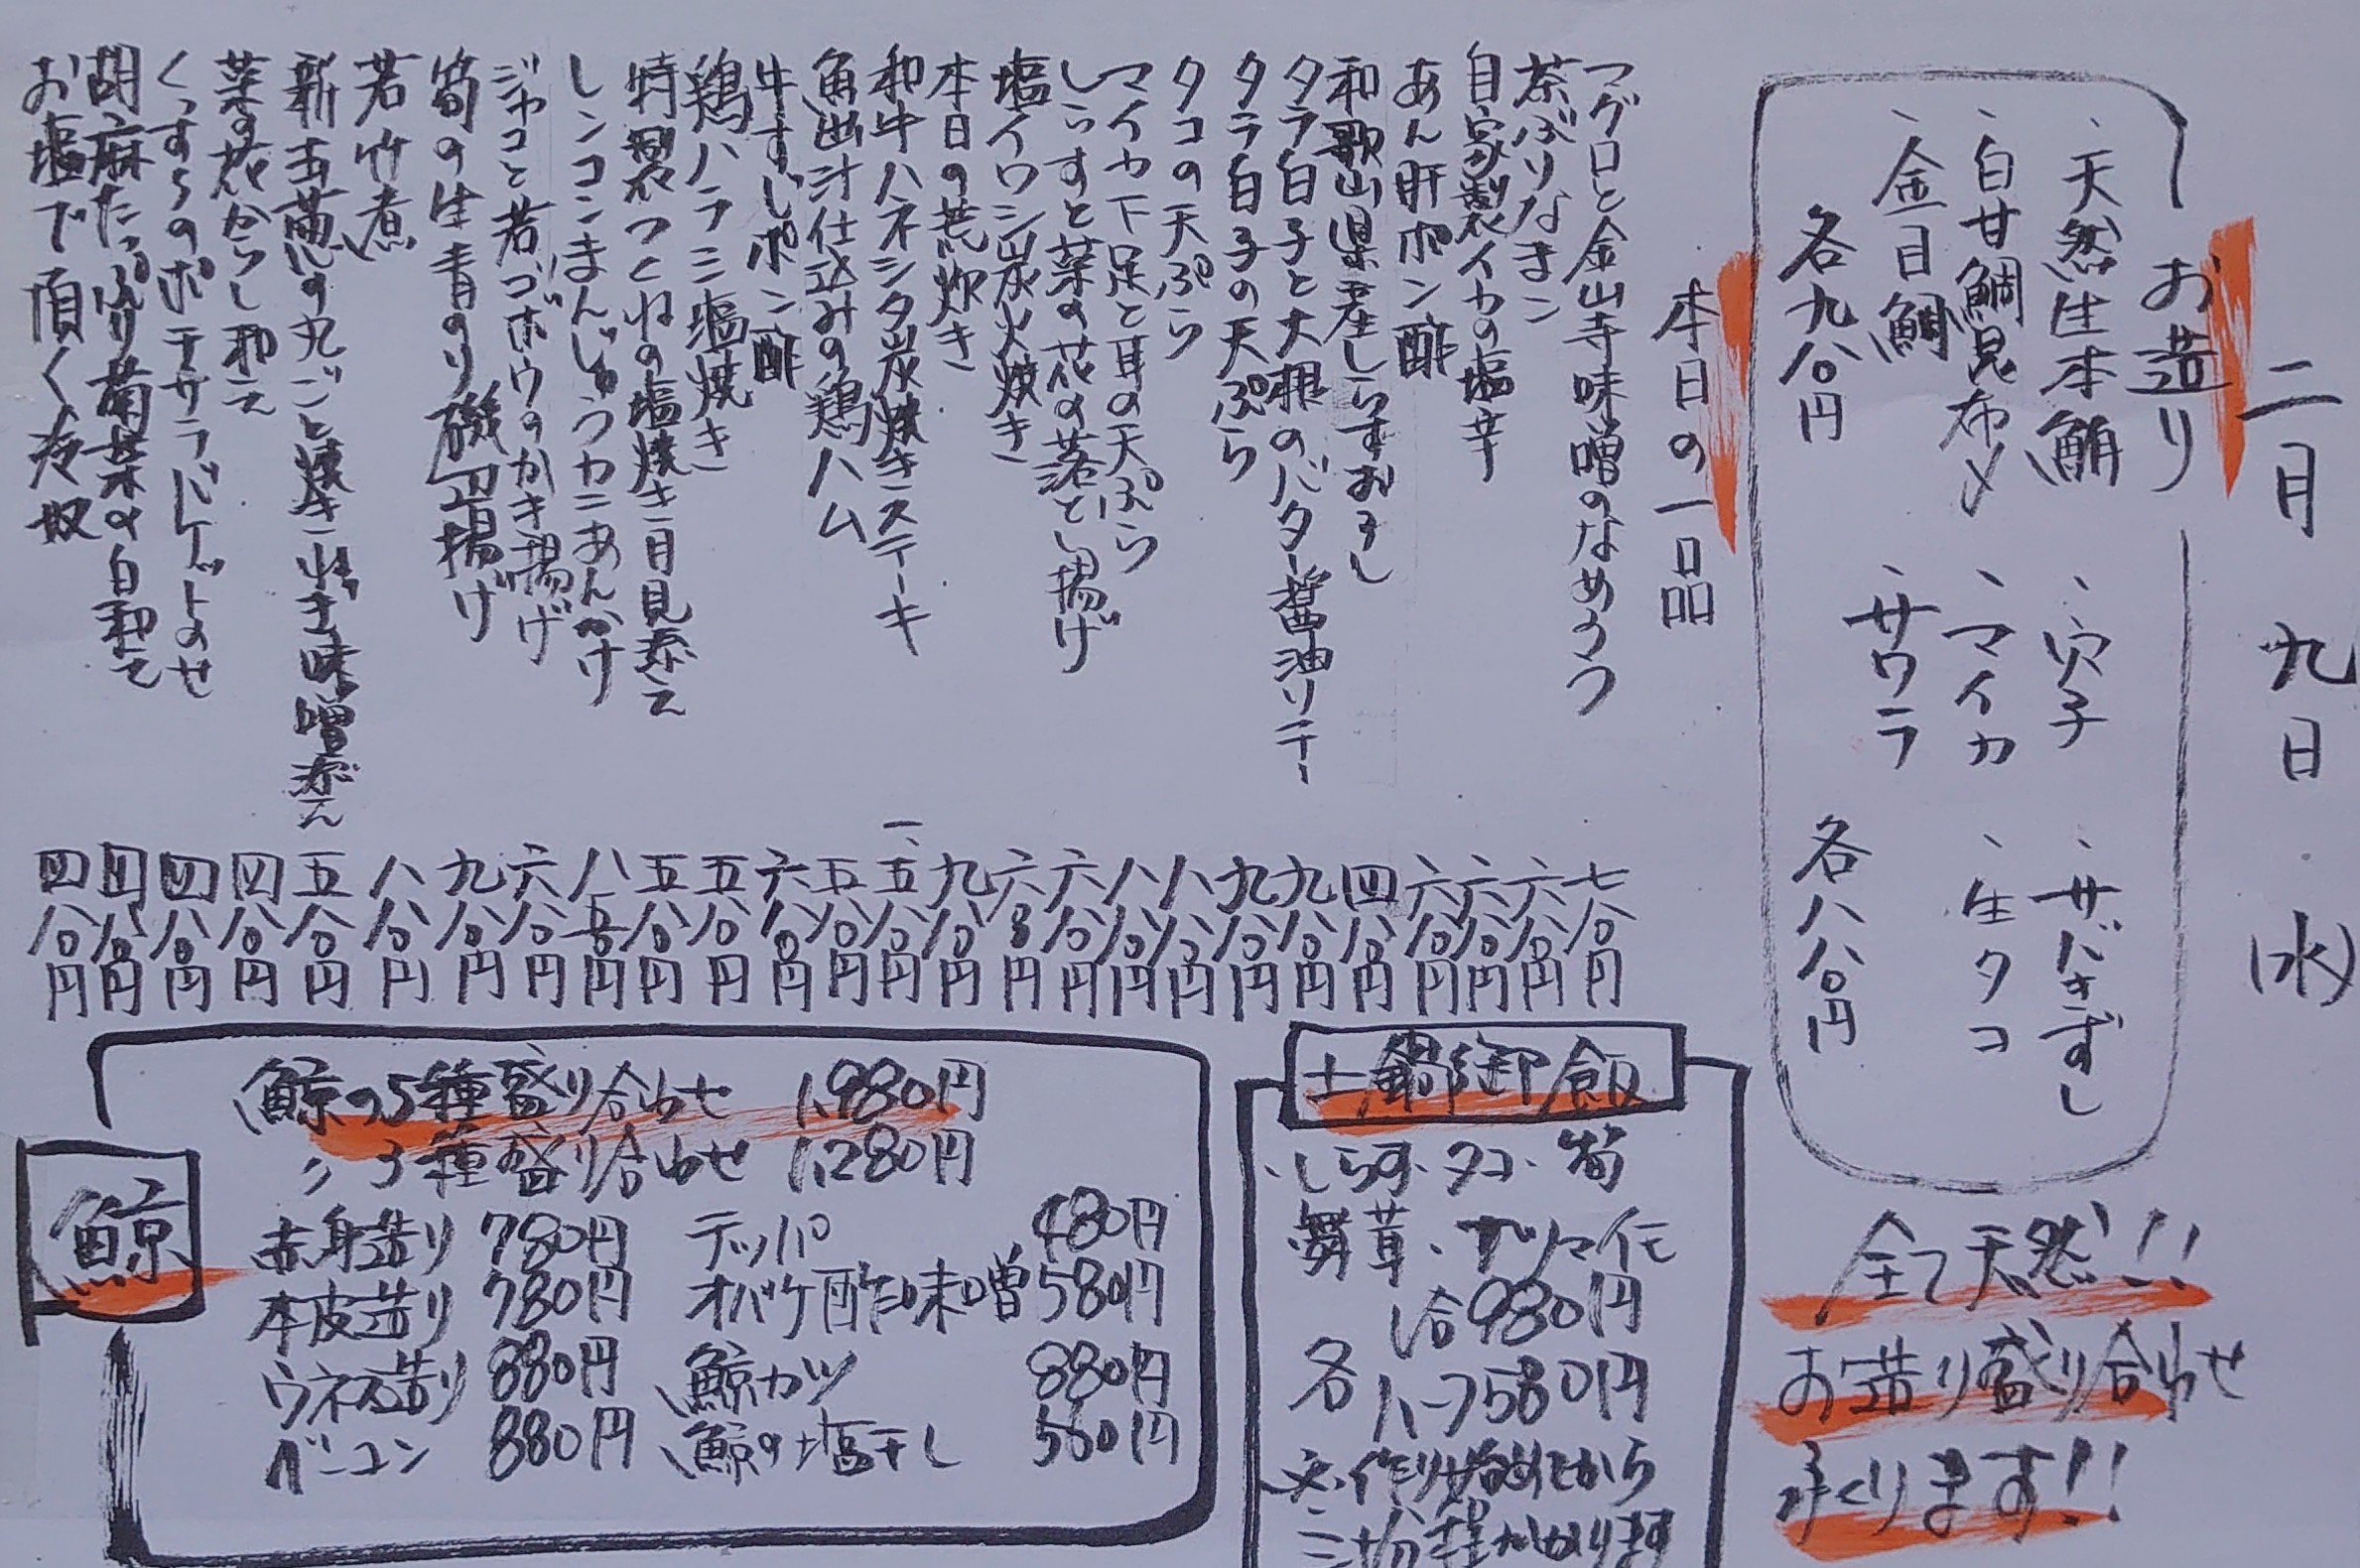 二月九日(水)
お造り
、天然生本鮪
、白甘鯛昆布〆
、金目鯛
各九八〇円
、穴子
、マイカ
、サワラ
、サバきずし
、生タコ
各八八〇円
全て天然!!
お造り盛り合わせ
承くります!!
本日の一品
マグロと金山寺味噌のなめろう 七八〇円
茶ぶりなまこ 六八〇円
自家製イカの塩辛 六八〇円
あん肝ポン酢 六八〇円
和歌山県産しらすおろし 四八〇円
タラ白子と大根のバター醤油ソテー 九八〇円
タラ白子の天ぷら 九八〇円
タコの天ぷら 八八〇円
マイカ下足と耳の天ぷら 八八〇円
しらすと菜の花の落とし揚げ 六八〇円
塩イワシ炭火焼き 六八〇円
本日の荒炊き 九八〇円
和牛ハネシタ炭焼きステーキ 一、五八〇円
魚出汁仕込みの鶏ハム 五八〇円
牛すじポン酢 六八〇円
鶏ハラミ塩焼き 五八〇円
特製つくねの塩焼き 月見添え 五八〇円
レンコンまんじゅうカニあんかけ 八五〇円
ジャコと若ゴボウのかき揚げ 六八〇円
筍の生青のり磯辺揚げ 九八〇円
若竹煮 八八〇円
新玉葱の丸ごと焼き ねぎ味噌添え 五八〇円
菜の花からし和え 四八〇円
くずらのポテサラバケットのせ 四八〇円
胡麻たっぷり菊菜の白和え 四八〇円
お塩で頂く冷奴 四八〇円
土鍋御飯
・しらす・タコ・筍
舞茸・サツマイモ
各 1合980円
ハーフ580円
※作り始めてから
三十分程かかります
鯨
鯨の5種盛り合わせ 1,980円
〃 3種盛り合わせ 1,280円
赤身造り 780円 テッパ 480円
本皮造り 780円 オバケ酢味噌 580円
ウネス造り 880円 鯨カツ 880円
ベーコン 880円 鯨の塩干し 580円